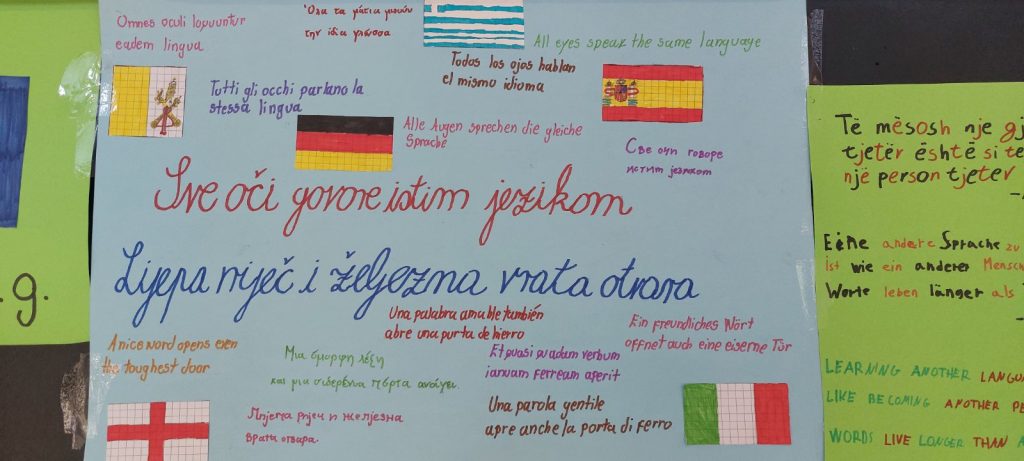 Omnes oculi loquuntur
eadem lingua
Όλα τα μάτια μιλούν
την ίδια γλώσσα
All eyes speak the same language
Todos los ojos hablan
el mismo idioma
Tutti gli occhi parlano la
stessa lingua
Alle Augen sprechen die gleiche
Sprache
Све очи говоре
истим језиком
Sve oči govore istim jezikom
Lijepa riječ i željezna vrata otvara
Una palabra amable también
abre una purta de hierro
Ein freundliches Wort
öffnet auch eine eiserne Tür
A nice word opens even
the toughest door
Μια όμορφη λέξη
και μια σιδερένια πόρτα ανοίγει.
verbum
ianuam ferream aperit
Una parola gentile
apre anche la porta di ferro
ријеч и жељезна
врата отвара.
.g.
Të mësosh nje
tjetër është si te
një person tjeter
Eine andere Sprache zu
ist wie ein anderer
Worte leben länger als
LEARNING ANOTHER
LIKE BECOMING ANOTHER
WORDS LIVE LONGER THAN